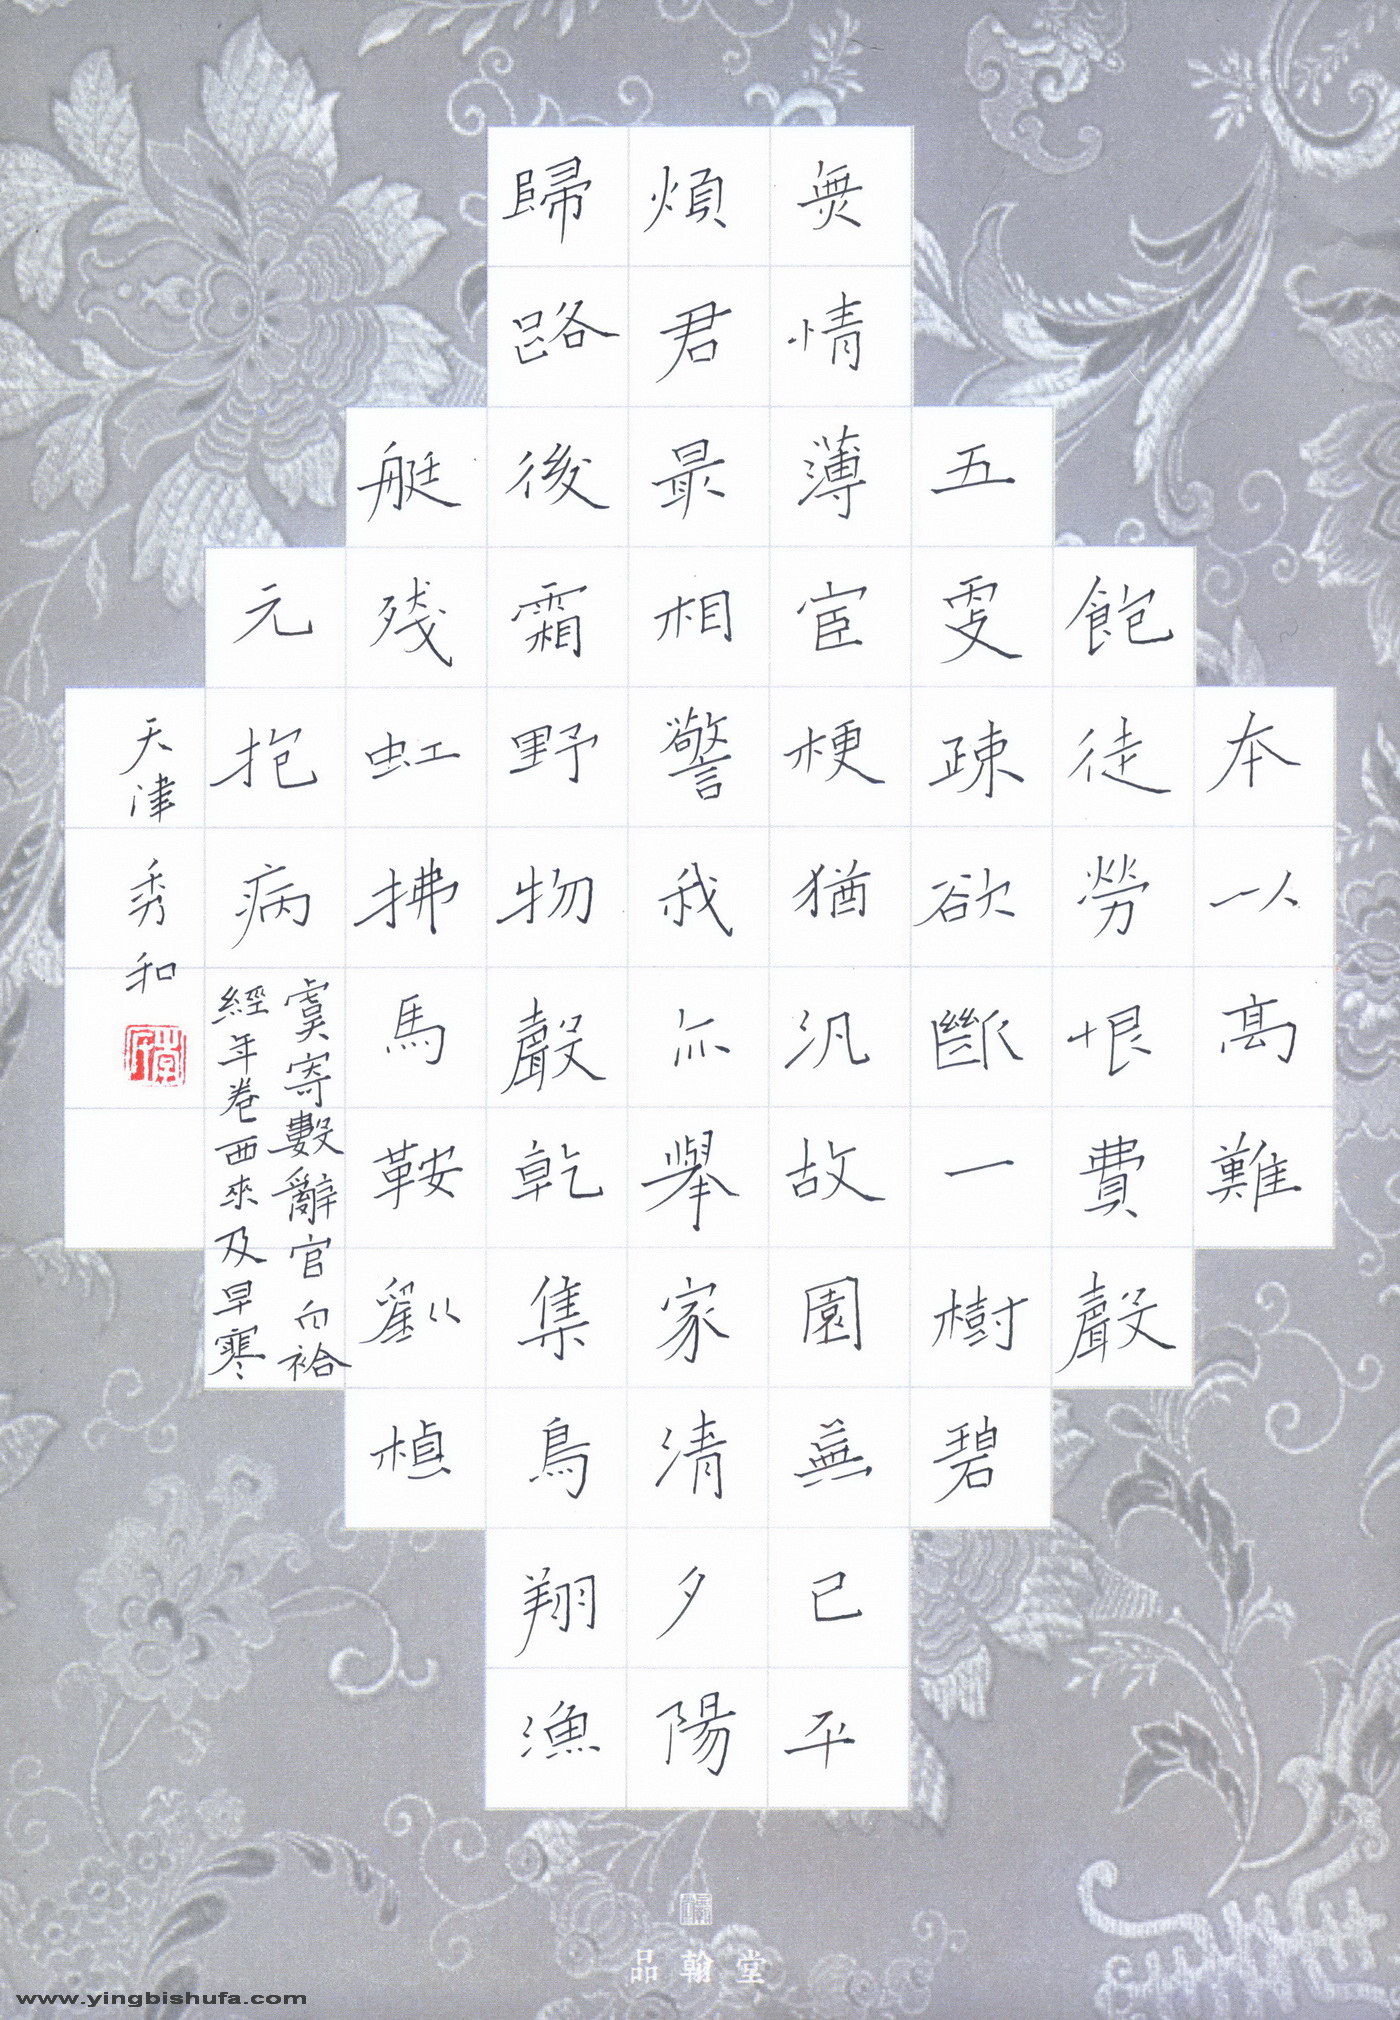 本以高難
飽徒勞恨費聲
五更疎欲斷一樹碧
無情薄宦梗猶汎故園蕪已平
煩君最相警我亦舉家清夕陽
歸路後霜野物聲乾集鳥翔漁
艇殘虹拂馬鞍劉公楨
元抱病
虞寄數辭官白袷
經年卷西來及早寒
天津秀和
品翰堂
www.yingbishufa.com